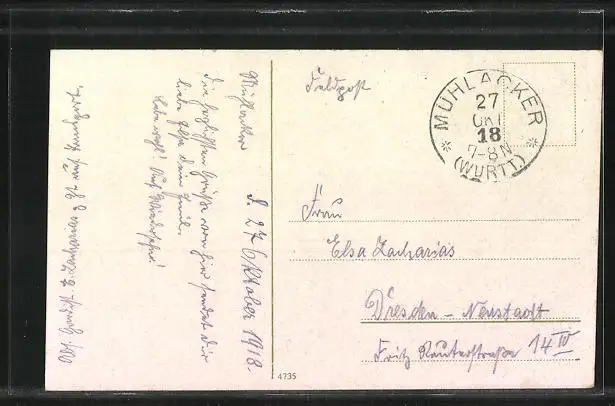 Mühlacker d. 27 Oktober 1918.
Die herzlichsten Grüße von hier sendet Dir
liebe Elsa Dein Emil.
Lebe wohl! Auf Wiedersehn!
Feldpost
MÜHLACKER
27
OKT
18
7-8 N
(WÜRTT.)
Frau
Elsa Zacharias
Dresden – Neustadt
Fritz Reuterstraße 14 IV
4735